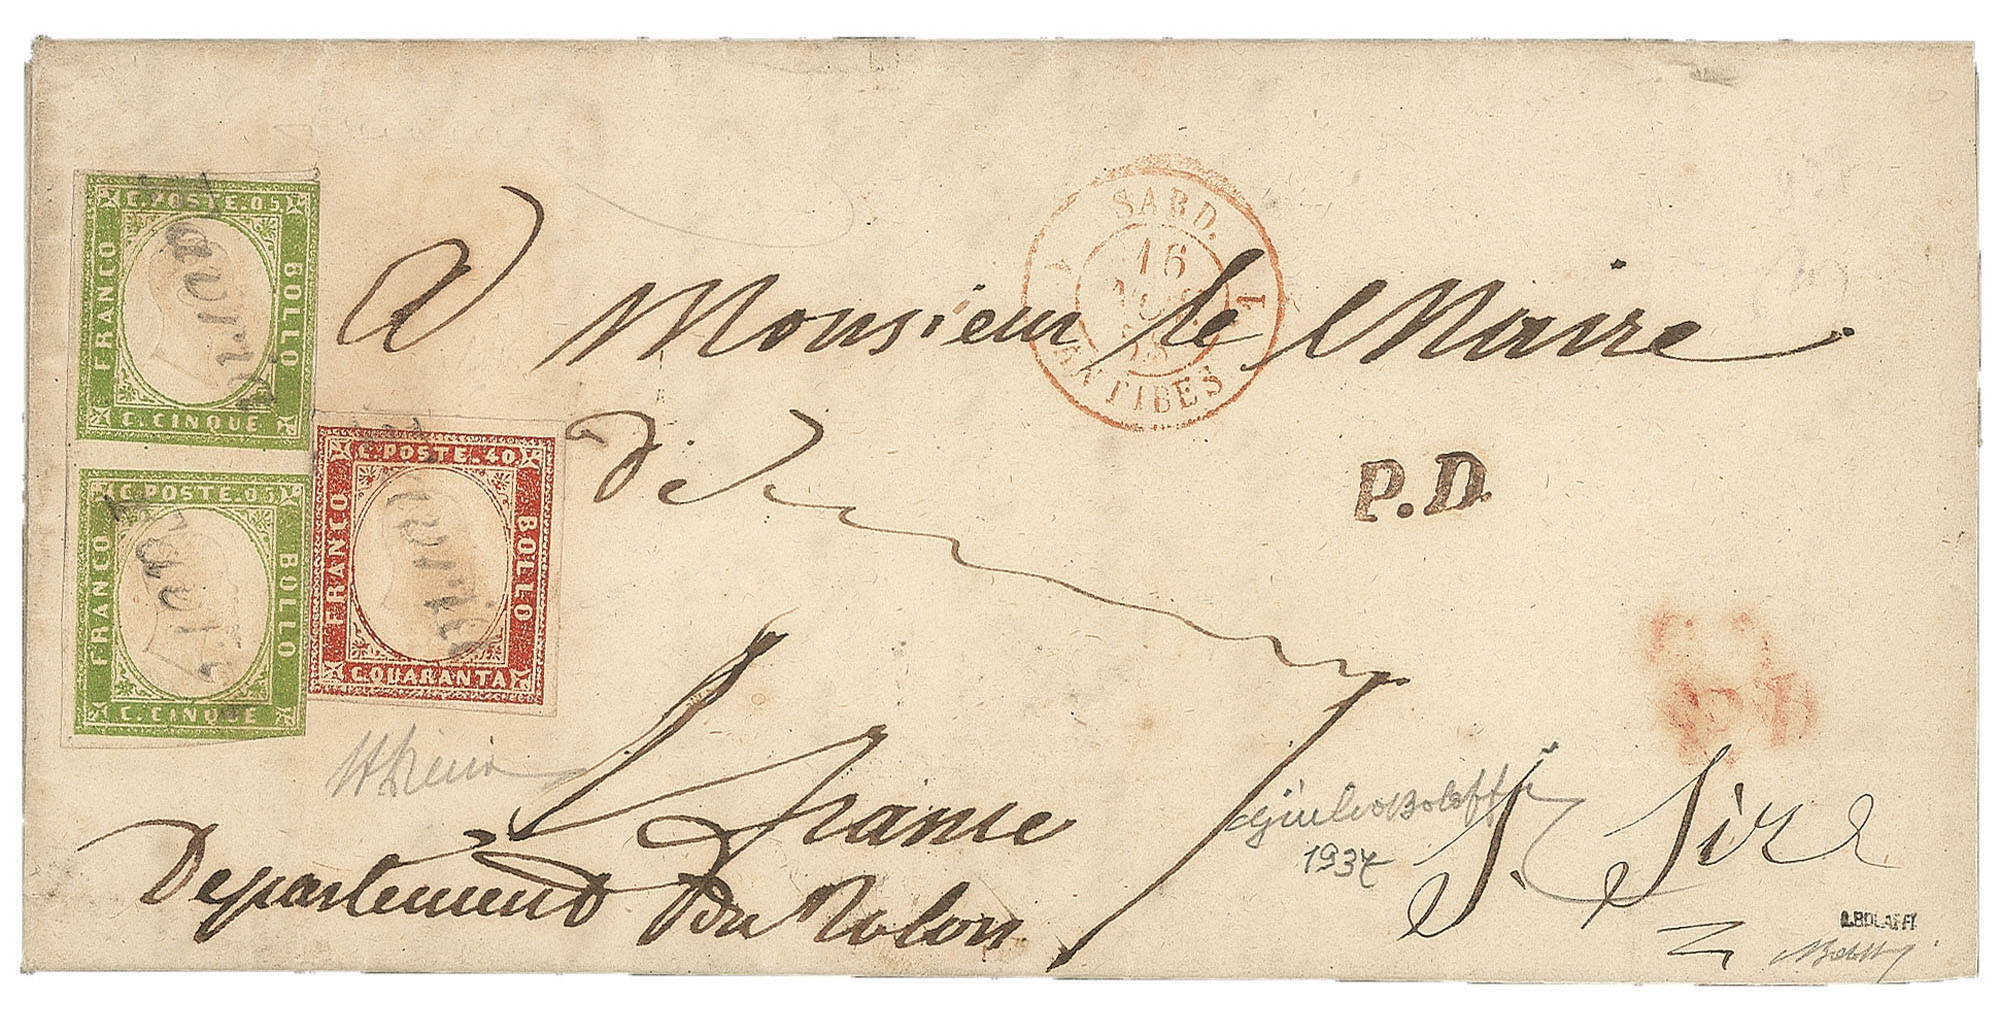 C. POSTE. 05
FRANCO
BOLLO
C. CINQUE
C. POSTE. 05
FRANCO
BOLLO
C. CINQUE
C. POSTE. 40
FRANCO
BOLLO
C. QUARANTA
SARD.
16
ANTIBES
1
A Monsieur le Maire
de
P.D.
P.D.
S. Sire
France
Departement du Rolon
Giulio Bolaffi
1937
A. BOLAFFI